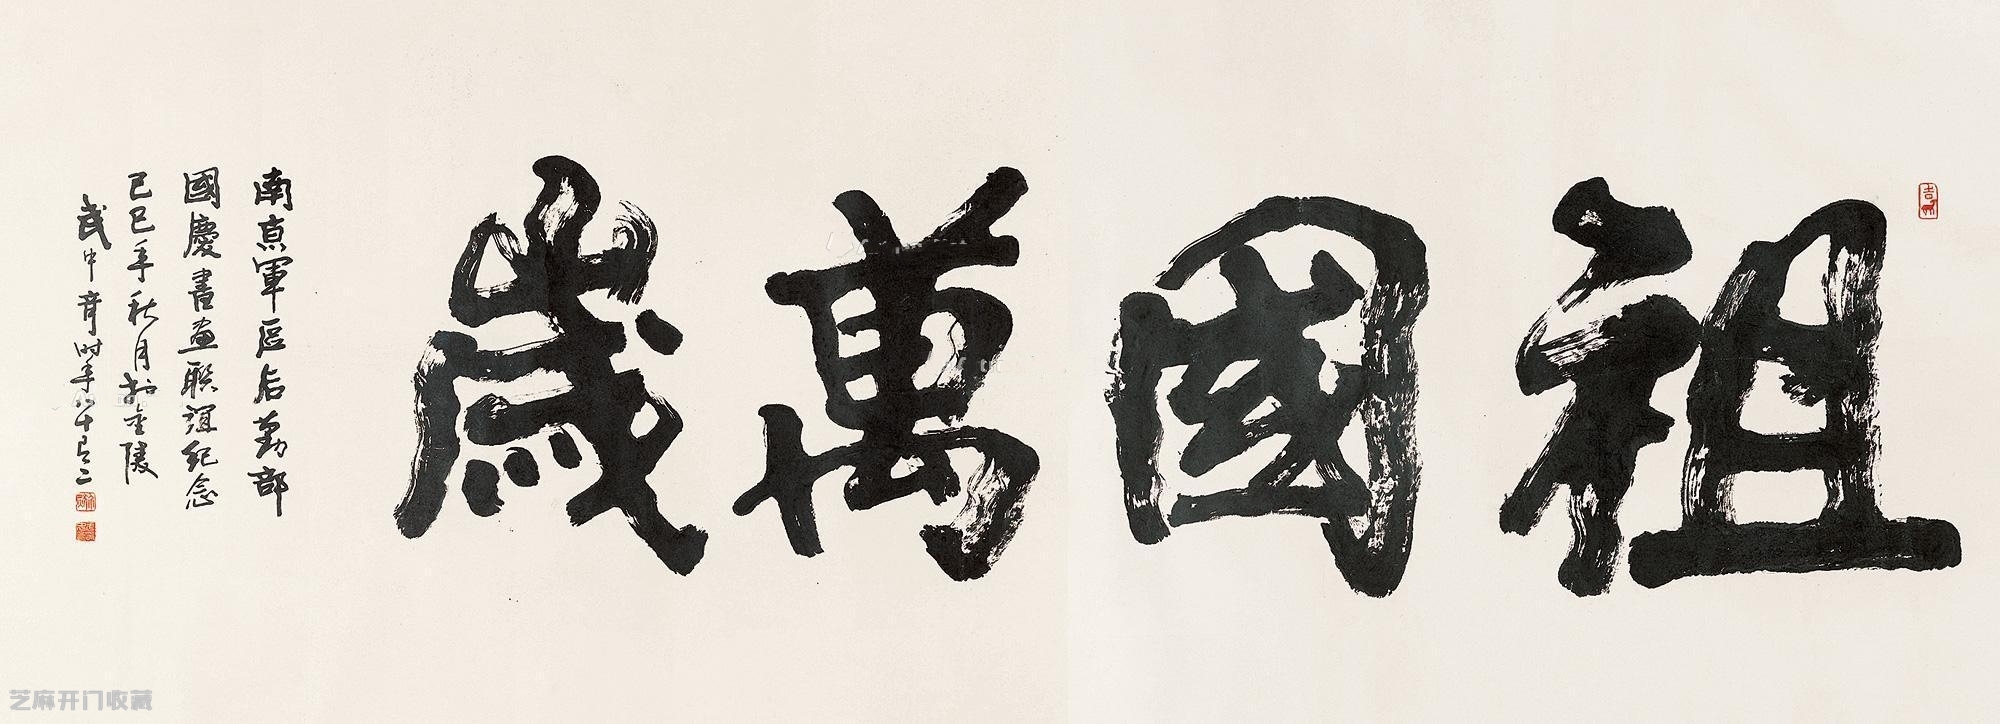 祖國萬歲
南京軍区后勤部
國慶書画联誼紀念
己巳年秋月於金陵
武中奇时年八十有二
芝麻开门收藏